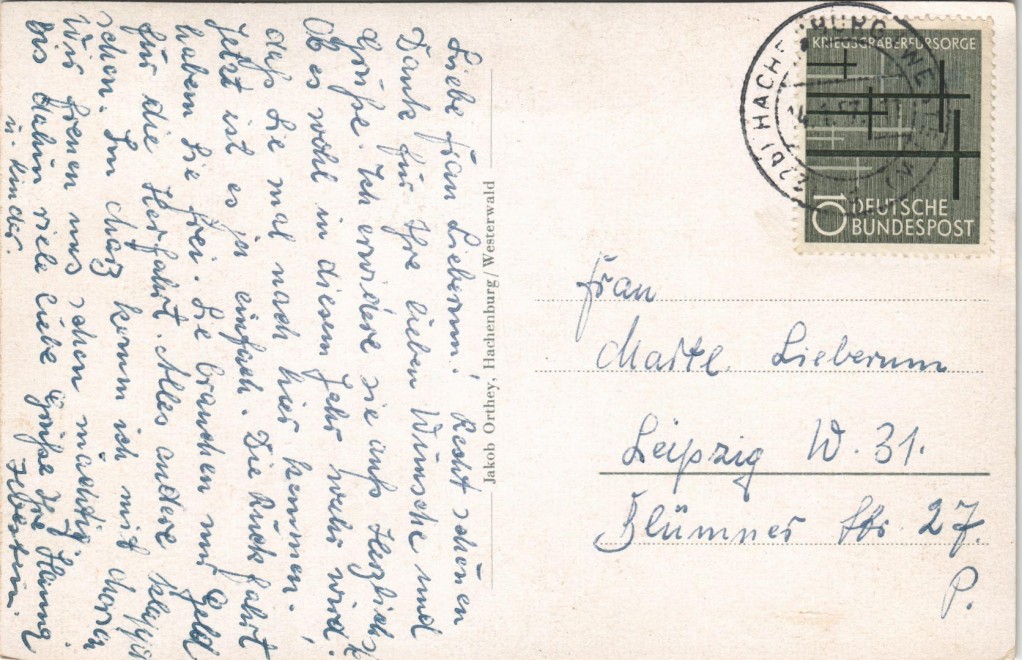 Liebe Frau Lieberum! Recht schönen
Dank für Ihre lieben Wünsche und
Grüße. Ich erwidere sie aufs Herzlichste
Ob es wohl in diesem Jahr wahr wird,
daß Sie mal nach hier kommen.
Jetzt ist es ja einfach. Die Rückfahrt
haben Sie frei. Sie brauchen nur Geld
für die Herfahrt. Alles andere klappt
schon. Im März komm ich mit
Wir freuen uns schon mächtig.
Bis dahin viele liebe Grüße Ihre
u. Kinder.
Jakob Orthey, Hachenburg/Westerwald
KRIEGSGRÄBERFÜRSORGE
10 DEUTSCHE
BUNDESPOST
HACHENBURG
Frau
Lieberum
Leipzig W. 31.
Blümner Str. 27.
P.